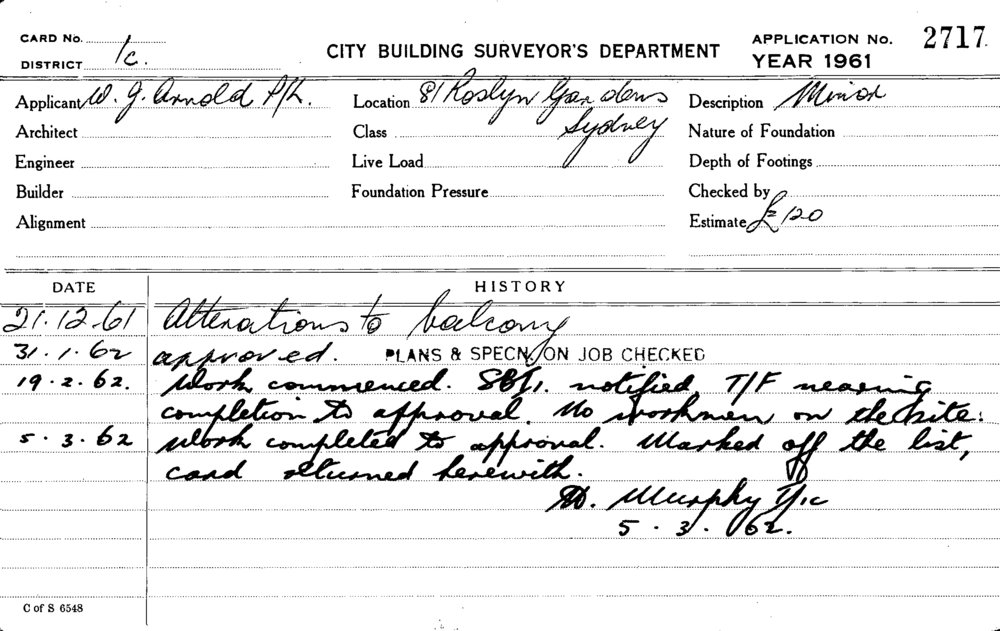 CARD No.
DISTRICT 1c.
CITY BUILDING SURVEYOR'S DEPARTMENT
APPLICATION No. 2717
YEAR 1961
Applicant W. J. Arnold P/L. Location 81 Roslyn Gardens Description Minor
Architect Class Sydney Nature of Foundation
Engineer Live Load Depth of Footings
Builder Foundation Pressure Checked by
Alignment Estimate £120
DATE HISTORY
21.12.61 Alterations to balcony
31.1.62 approved. PLANS & SPECN. ON JOB CHECKED
19.2.62. Work commenced. notified T/F nearing
completion to approval. No workmen on the site.
5.3.62 Work completed to approval. Marked off the list,
card returned herewith.
M. Murphy 1c
5.3.62.
C of S 6548